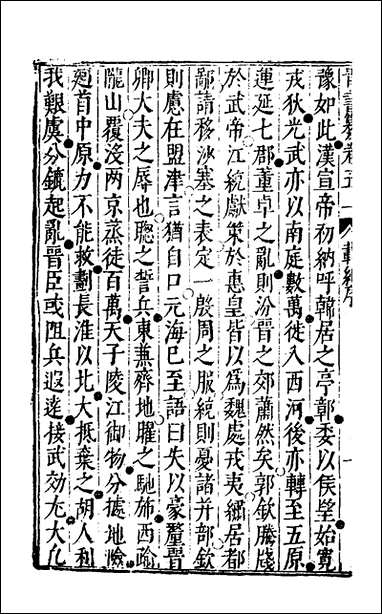 晉書纂卷五一 載紀序 一
豫如此漢宣帝初納呼韓居之亭鄣委以侯望始寬
戎狄光武亦以南庭數萬徙入西河後亦轉至五原
連延七郡董卓之亂則汾晉之郊蕭然矣郭欽騰牋
於武帝江統獻策於惠皇皆以為魏處戎夷繡居都
鄙請移沙塞之表定一殷周之服統則憂諸并部欽
則慮在盟津言猶自口元海已至語曰失以豪釐晉
卿大夫之辱也聰之誓兵東兼齊地曜之馳斾西踰
隴山覆沒两京蒸徒百萬天子陵江御物分據地險
𢌞首中原力不能救劃長淮以北大抵棄之胡人利
我艱虞分鑣起亂晉臣或阻兵遐遠接武効尤大凢